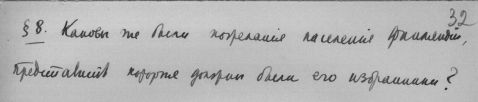 32
§ 8. Каковы же были пожелания населения Финляндiи,
представить которыя должны были его избранники?